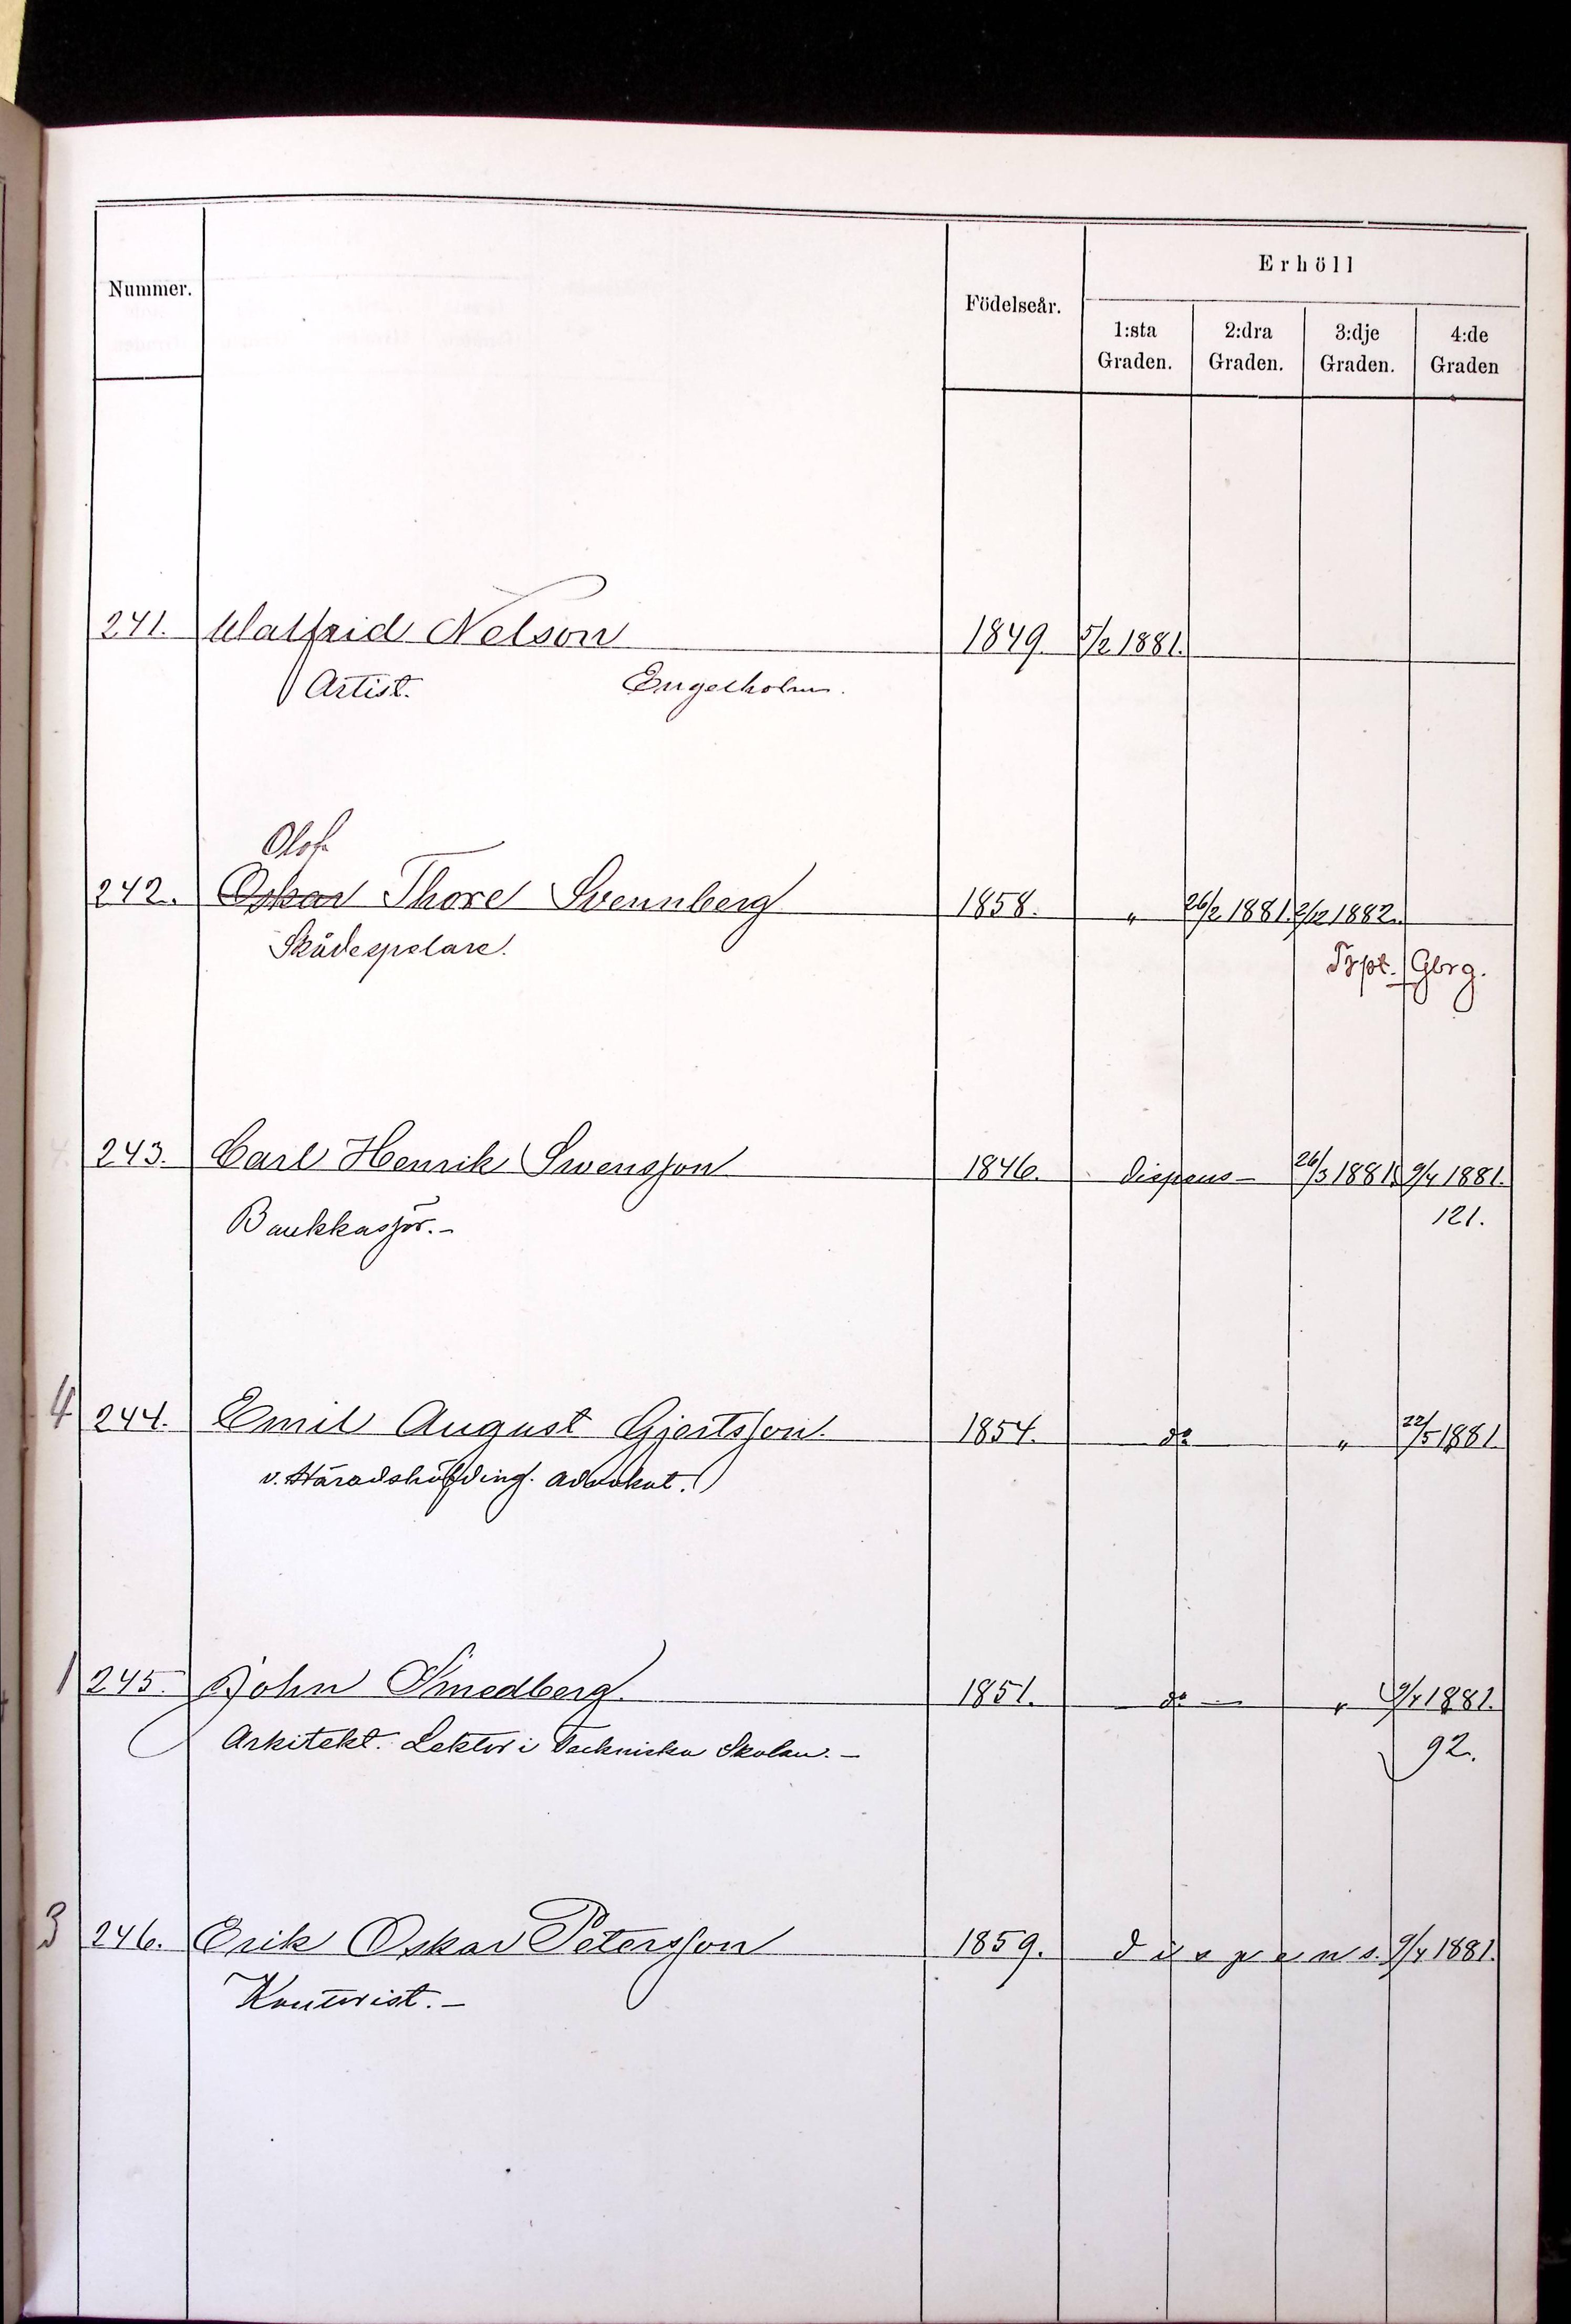 Erhöll
Nummer. Födelseår.
1:sta Graden. 2:dra Graden. 3:dje Graden. 4:de Graden
241. Walfrid Nelson 1849 5/2 1881.
Artist. Engelholm.
Olof
242. Oskar Thore Svennberg 1858. " 26/2 1881. 2/12 1882.
Skådespelare. Trpt. Gbrg.
243. Carl Henrik Swensson 1846. dispens - 26/3 1881. 9/4 1881.
Bankkassör. - 121.
4 244. Emil August Gjertsson. 1854. do " 22/5 1881.
v. Häradshöfding. advokat.
1 245. John Smedberg. 1851. do - " 9/4 1881.
Arkitekt. Lektor i Tekniska Skolan. - 92.
3 246. Erik Oskar Petersson 1859. dispens. 9/4 1881.
Kontorist. -